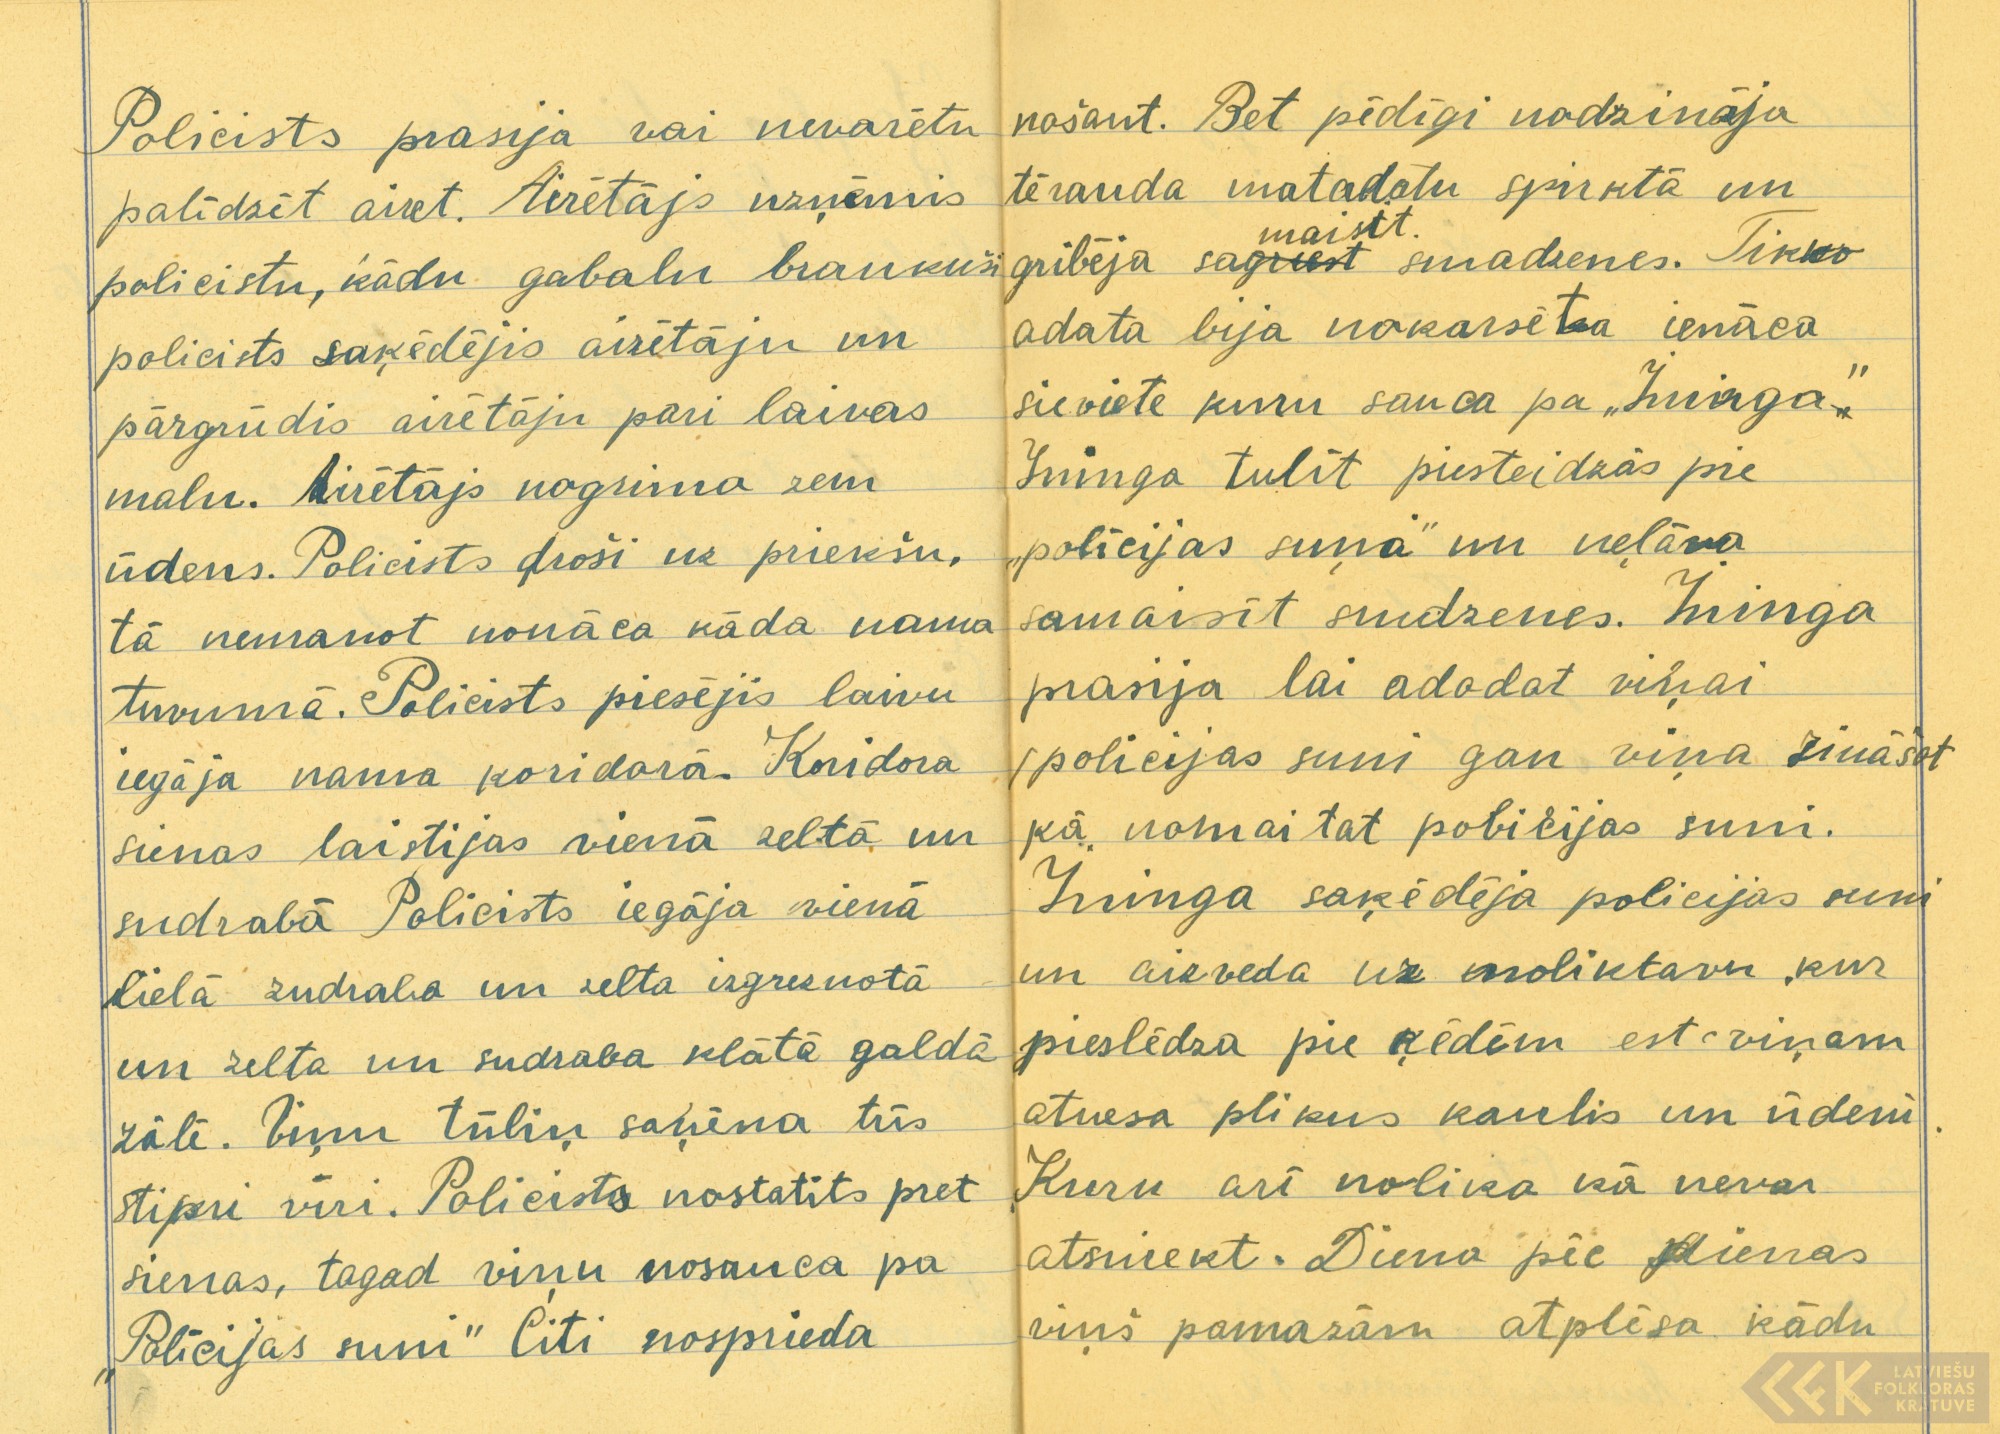 Policists prasija vai nevarētu
palīdzēt airet. Airētājs uzņēmis
policistu, kādu gabalu braukuši
policists saķēdējis airētāju un
pārgrūdis airētāju pāri laivas
malu. Airētājs nogrima zem
ūdens. Policists droši uz priekšu,
tā nemanot nonāca kāda nama
tuvumā. Policists piesējis laivu
iegāja nama koridorā. Koridora
sienas laistijas vienā zeltā un
sudrabā Policists iegāja vienā
lielā zudraba un zelta izgreznotā
un zelta un sudraba klātā galdā
zālē. Viņu tūliņ saņēma trīs
stipri vīri. Policists nostatits pret
sienas, tagad viņu nosauca pa
„Policijas suni" Citi nosprieda
nošaut. Bet pēdīgi nodzināja
tērauda matadatu spirktā un
maisīt.
gribēja sagriest smadzenes. Tikko
adata bija nokarsēta ienāca
sieviete kuru sauca pa „Ininga"
Ininga tulīt piesteidzās pie
„policijas suņa" un neļāva
samaisīt smdzenes. Ininga
prasija lai adodat viņai
policijas suni gan viņa zināšot
kā nomaitat policijas suni.
Ininga saķēdēja policijas suni
un aizveda uz noliktavu, kur
pieslēdza pie ķēdēm est viņam
atnesa plikus kaulis un ūdeni.
Kuru arī nolika kā nevar
atsniekt. Diena pēc dienas
viņš pamazām atplēsa kādu
LATVIEŠU
FOLKLORAS
KRĀTUVE